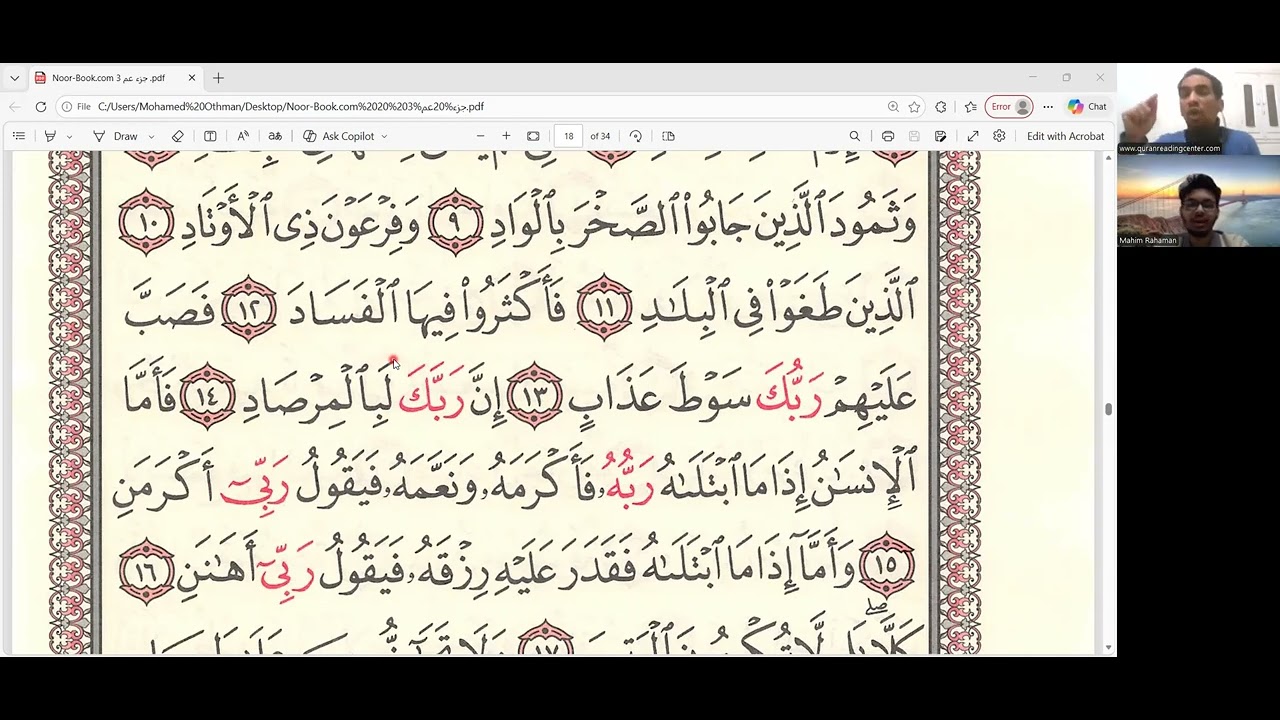 Noor-Book.com جزء عم 3 .pdf
File C:/Users/Mohamed%20Othman/Desktop/Noor-Book.com%2020%203%جزء%20عم.pdf
Error
Chat
Draw
Ask Copilot
18 of 34
Edit with Acrobat
www.quranreadingcenter.com
Mahim Rahaman
وَثَمُودَ ٱلَّذِينَ جَابُوا۟ ٱلصَّخْرَ بِٱلْوَادِ ٩ وَفِرْعَوْنَ ذِى ٱلْأَوْتَادِ ١٠
ٱلَّذِينَ طَغَوْا۟ فِى ٱلْبِلَـٰدِ ١١ فَأَكْثَرُوا۟ فِيهَا ٱلْفَسَادَ ١٢ فَصَبَّ
عَلَيْهِمْ رَبُّكَ سَوْطَ عَذَابٍ ١٣ إِنَّ رَبَّكَ لَبِٱلْمِرْصَادِ ١٤ فَأَمَّا
ٱلْإِنسَـٰنُ إِذَا مَا ٱبْتَلَىٰهُ رَبُّهُۥ فَأَكْرَمَهُۥ وَنَعَّمَهُۥ فَيَقُولُ رَبِّىٓ أَكْرَمَنِ
١٥ وَأَمَّآ إِذَا مَا ٱبْتَلَىٰهُ فَقَدَرَ عَلَيْهِ رِزْقَهُۥ فَيَقُولُ رَبِّىٓ أَهَـٰنَنِ ١٦